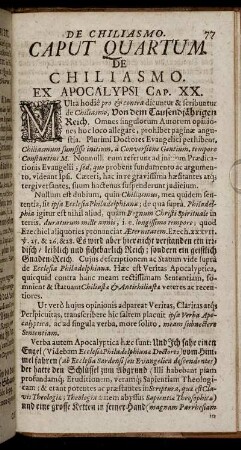 DE CHILIASMO. 77
CAPUT QUARTUM.
DE
CHILIASMO.
EX APOCALYPSI CAP. XX.
MUlta hodiè pro & contra dicuntur & scribuntur
de Chiliasmo, Von dem Tausendjährigen
Reich. Quorum singulorum Autorum opinio-
nes huc loco allegare, prohibet paginæ angu-
stia. Plurimi Doctores Evangelici perhibent,
Chiliasmum sumpsisse initium, à Converso Constantino, tempore
Constantini M. Nonnulli enim referunt ad initium Prædica-
tionis Evangelii, sed, quæ probent fundamento ac argumen-
to, videant ipsi. Cæteri,
tergiversantes, suum hoctenus suspendunt assensum.
Nullum est dubium, quin Chiliasmus, mea quidem senten-
tia, sit ipsa Ecclesia Philadelphiana; de qua suprà. Philadelph-
ia igitur est nihil aliud, quam Regnum Christi Spirituale in
terris. tempore; quod
Ezech.xxxvii.
Es wird aber hierdurch verstanden ein ir-
disch / leiblich und Reich; sondern ein geistlich
Gnaden-Reich. Cujus descriptionem ac Statum vide suprà
de Ecclesia Philadelphiana. Hæc est Veritas Apocalyptica,
quicquid contra hanc meam certissimam Sententiam, so-
mnient & statuant Chiliastæ & Antichiliastæ veteres ac recen-
tiores.
Ut verò hujus opinionis adpareat Veritas, Claritas atque
Perspicuitas, transferibere hic saltem placuit ipsa Verba Apo-
calyptica, ac ad singula verba, more solito, meam subnectere
Sententiam.
Verba autem Apocalyptica hæc sunt: Und Ich sahe einen
Engel (Videbam Ecclesiæ Philadelphianæ Doctores) vom Him-
mel fahren (ab Ecclesia Sardensi seu Evangelica descendentes)
der hatte den Schlüssel zum Abgrund (Illi habebant piam
profundamq; Eruditionem, veramq; Sapientiam Theologi-
cam; & erant potentes ac præstantes in Scriptura, quæ est Cla-
vis Theologiæ; Theologia autem abyssus Sapientiæ Theosophicæ)
und eine grosse Ketten in seiner Hand (magnam Parrhesiam
in